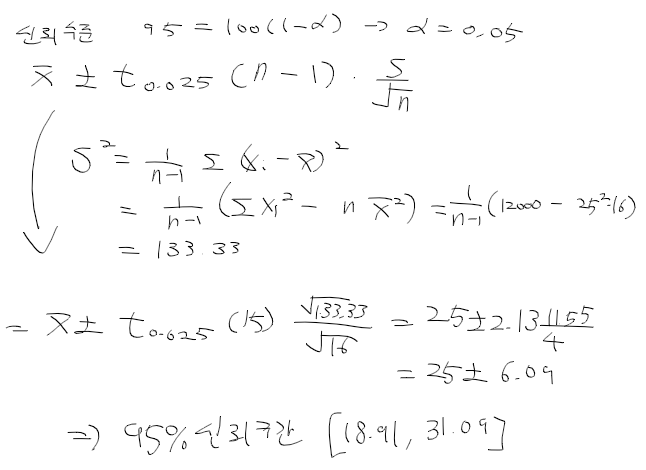 신뢰수준 95 = 100(1-α) → α = 0.05
x̄ ± t₀.₀₂₅ (n - 1) · S/√n
S² = 1/(n-1) Σ (xᵢ - x̄)²
= 1/(n-1) (Σ xᵢ² - n x̄²) = 1/(n-1) (12000 - 25²·16)
= 133.33
= x̄ ± t₀.₀₂₅ (15) √133.33/√16 = 25 ± 2.13 11.55/4
= 25 ± 6.09
⇒ 95% 신뢰구간 [18.91, 31.09]